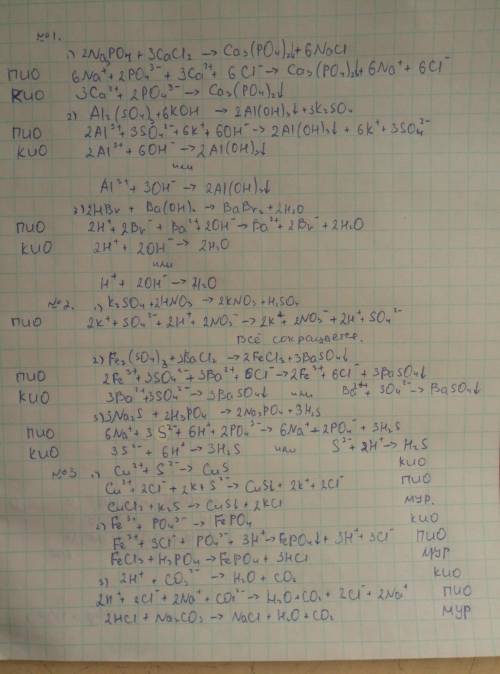 №1.
1) 2Na3PO4 + 3CaCl2 → Ca3(PO4)2↓ + 6NaCl
ПИО 6Na⁺ + 2PO4³⁻ + 3Ca²⁺ + 6Cl⁻ → Ca3(PO4)2↓ + 6Na⁺ + 6Cl⁻
КИО 3Ca²⁺ + 2PO4³⁻ → Ca3(PO4)2↓
2) Al2(SO4)3 + 6KOH → 2Al(OH)3↓ + 3K2SO4
ПИО 2Al³⁺ + 3SO4²⁻ + 6K⁺ + 6OH⁻ → 2Al(OH)3↓ + 6K⁺ + 3SO4²⁻
КИО 2Al³⁺ + 6OH⁻ → 2Al(OH)3↓
или
Al³⁺ + 3OH⁻ → 2Al(OH)3↓
3) 2HBr + Ba(OH)2 → BaBr2 + 2H2O
ПИО 2H⁺ + 2Br⁻ + Ba²⁺ + 2OH⁻ → Ba²⁺ + 2Br⁻ + 2H2O
КИО 2H⁺ + 2OH⁻ → 2H2O
или
H⁺ + 2OH⁻ → H2O
№2. 1) K2SO4 + 2HNO3 → 2KNO3 + H2SO4
ПИО 2K⁺ + SO4²⁻ + 2H⁺ + 2NO3⁻ → 2K⁺ + 2NO3⁻ + 2H⁺ + SO4²⁻
всё сокращается.
2) Fe2(SO4)3 + 3BaCl2 → 2FeCl3 + 3BaSO4↓
ПИО 2Fe³⁺ + 3SO4²⁻ + 3Ba²⁺ + 6Cl⁻ → 2Fe³⁺ + 6Cl⁻ + 3BaSO4↓
КИО 3Ba²⁺ + 3SO4²⁻ → 3BaSO4↓ или Ba²⁺ + SO4²⁻ → BaSO4↓
3) 3Na2S + 2H3PO4 → 2Na3PO4 + 3H2S
ПИО 6Na⁺ + 3S²⁻ + 6H⁺ + 2PO4³⁻ → 6Na⁺ + 2PO4³⁻ + 3H2S
КИО 3S²⁻ + 6H⁺ → 3H2S или S²⁻ + 2H⁺ → H2S
№3 1) Cu²⁺ + S²⁻ → CuS КИО
Cu²⁺ + 2Cl⁻ + 2K⁺ + S²⁻ → CuS↓ + 2K⁺ + 2Cl⁻ ПИО
CuCl2 + K2S → CuS↓ + 2KCl МУР.
2) Fe³⁺ + PO4³⁻ → FePO4 КИО
Fe³⁺ + 3Cl⁻ + PO4³⁻ + 3H⁺ → FePO4↓ + 3H⁺ + 3Cl⁻ ПИО
FeCl3 + H3PO4 → FePO4 + 3HCl МУР
3) 2H⁺ + CO3²⁻ → H2O + CO2 КИО
2H⁺ + 2Cl⁻ + 2Na⁺ + CO3²⁻ → H2O + CO2 + 2Cl⁻ + 2Na⁺ ПИО
2HCl + Na2CO3 → NaCl + H2O + CO2 МУР